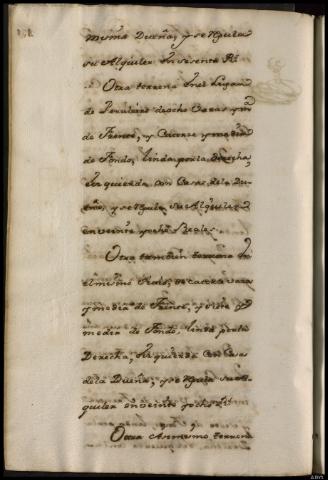 misma Dueña, y se regula
su Alquiler en sesenta Rs
Otra terrena en el Lugar
de ocho Varas y ma
de Frente, y Catorce y media
de Fondo, linda por la Derecha,
Izquierda con Casas de la Du-
eña, y se regula su Alquiler
en veinte y ocho Reales.
Otra tambien terrena en
el mismo de catorce varas
y media de Frente, y siete y
media de Fondo, linda por la
Derecha, Izquierda con Casas
de la Dueña, y se regula su Al-
quiler en veinte y ocho Rs
Otra Asimismo terrena